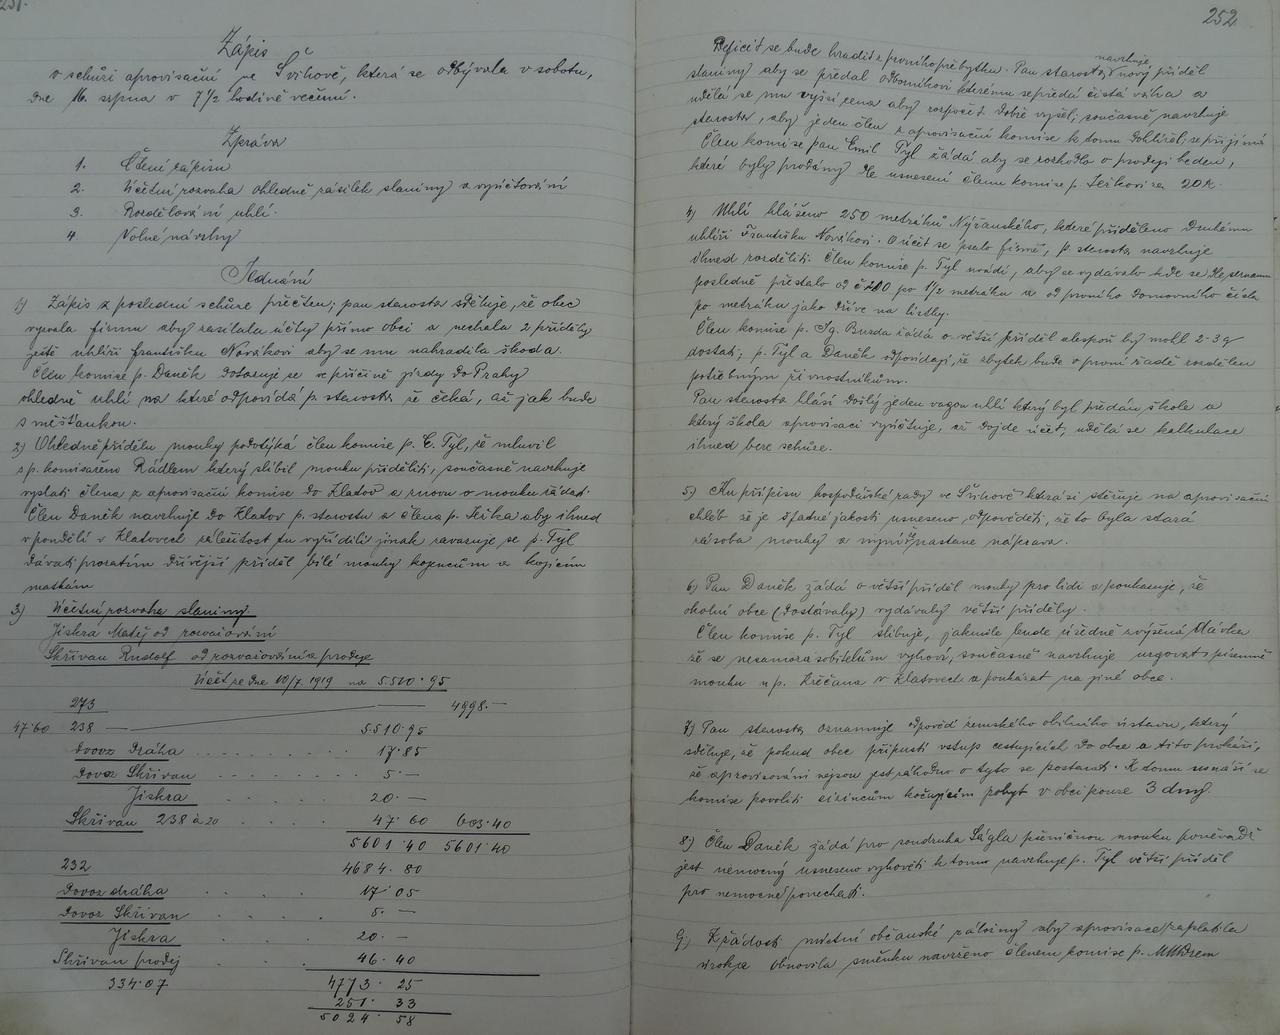 251.
Zápis
o schůzi aprovisační ve Švihově, která se odbývala v sobotu,
dne 16. srpna v 7 1/2 hodině večerní.
Zpráva
1. Čtení zápisu
2. Účetní rozvaha ohledně zásilek slaniny a vyúčtování
3. Rozdělování uhlí.
4. Volné návrhy
Jednání
1) Zápis z poslední schůze přečten; pan starosta sděluje, že obec
vyzvala firmu aby zasílala účty přímo obci a nechala 2 příděly
ještě uhlíři Františku Novákovi aby se mu nahradila škoda.
Člen komise p. Daněk dotazuje se ve příčině jízdy do Prahy
ohledně uhlí na které odpovídá p. starosta že čeká, až jak bude
s měšťankou.
2) Ohledně přídělu mouky podotýká člen komise p. E. Tyl, že mluvil
s p. komisařem Rádlem který slíbil mouku přiděliti, současně navrhuje
vyslati člena z aprovisační komise do Klatov a znovu o mouku žádat.
Člen Daněk navrhuje do Klatov p. starostu a člena p. Ježka aby ihned
v pondělí v Klatovech záležitost tu vyřídili jinak zavazuje se p. Tyl
dávati prozatím dřívější příděl bílé mouky kojencům a kojícím
matkám
3) Účetní rozvaha slaniny
Jiskra Matěj od rozvažování
Skřivan Rudolf od rozvažování a prodeje
Účet ze dne 10/7. 1919 na 5510·95
273 — 4998.—
47·60 238 — 5510·95
Dovoz dráha . . . . . . . 17·85
Dovoz Skřivan . . . . . . . 5·—
Jiskra . . . . 20·—
Skřivan 238 à 20 . . . . 47·60 603·40
5601·40 5601·40
232 4684·80
Dovoz dráha . . . 17·05
Dovoz Skřivan . . . 5·—
Jiskra . . . 20·—
Skřivan prodej . . . 46·40
334·07 4773·25
251·33
5024·58
252
Deficit se bude hradit z prvního přebytku. Pan starosta navrhuje nový příděl
slaniny aby se předal odborníkovi kterému se předá čistá váha a
udělá se mu vyšší cena aby rozpočet dobře vyšel; současně navrhuje
starosta, aby jeden člen z aprovisační komise k tomu dohlížel; se přijímá
Člen komise pan Emil Tyl žádá aby se rozhodlo o prodeji beden,
které byly prodány dle usnesení členu komise p. Ježkovi za 20 K.
4) Uhlí hlášeno 250 metráků Nýřanského, které přiděleno druhému
uhlíři Františku Novákovi. O účet se psalo firmě, p. starosta navrhuje
ihned rozděliti. Člen komise p. Tyl uvádí, aby se vydávalo kde se dle seznamu
posledně přestalo od č 200 po 1 1/2 metráku a od prvního domovního čísla
po metráku jako dříve na lístky.
Člen komise p. Ig. Burda žádá o větší příděl alespoň by mohl 2-3 q
dostati; p. Tyl a Daněk odpovídají, že zbytek bude v první řadě rozdělen
potřebným živnostníkům.
Pan starosta hlásí došlý jeden vagon uhlí který byl předán škole a
který škola aprovisaci vyúčtuje, až dojde účet, udělá se kalkulace
ihned beze schůze.
5) Ku přípisu hospodářské rady ve Švihově která si stěžuje na aprovisační
chléb že je špatné jakosti usneseno odpověděti, že to byla stará
zásoba mouky a nyní že nastane náprava.
6) Pan Daněk žádá o větší příděl mouky pro lidi a poukazuje, že
okolní obce (dostávaly) vydávaly větší příděly.
Člen komise p. Tyl slibuje, jakmile bude úředně zvýšená dávka
že se nesamozásobitelům vyhoví, současně navrhuje urgovat písemně
mouku u p. Křečana v Klatovech a poukázat na jiné obce.
7) Pan starosta oznamuje odpověď zemského obilního ústavu, který
sděluje, že pokud obec připustí vstup cestujících do obce a tito prokáží,
že aprovisováni nejsou jest záhodno o tyto se postarati. K tomu usnáší se
komise povoliti cizincům kočujícím pobyt v obci pouze 3 dny.
8) Člen Daněk žádá pro soudruha Ságla pšeničnou mouku poněvadž
jest nemocný usneseno vyhověti k tomu navrhuje p. Tyl větší příděl
pro nemocné ponechati.
9) K žádosti místní občanské záložny aby aprovisace zaplatila
úrok a obnovila směnku navrženo členem komise p.